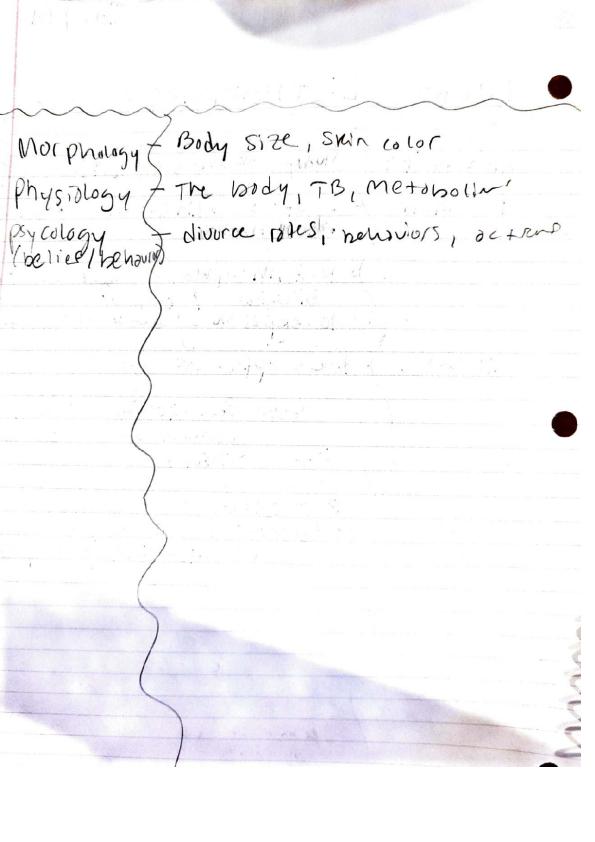 Morphology - Body size, skin color
Physiology - The body, TB, Metabolism
psycology - divorce rates, behaviors, actions
(belief/behavior)